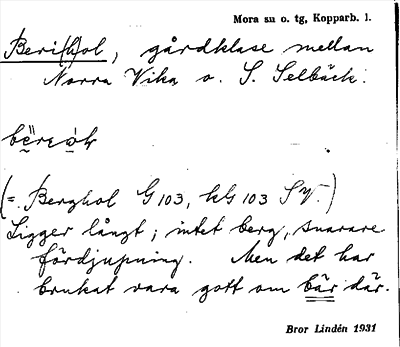 Mora sn o. tg, Kopparb. l.
Beri(h)ol, gårdklase mellan
Norra Vika o. S. Selbäck.
(= Berghol G 103, kG 103 SV.)
Ligger långt; intet berg, snarare
fördjupning. Men det har
brukat vara gott om bär där.
Bror Lindén 1931